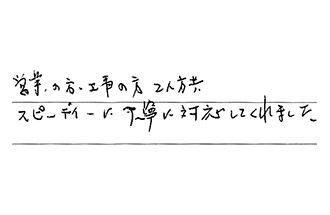 営業の方、工事の方 2人方共
スピーディーに丁寧に対応してくれました。